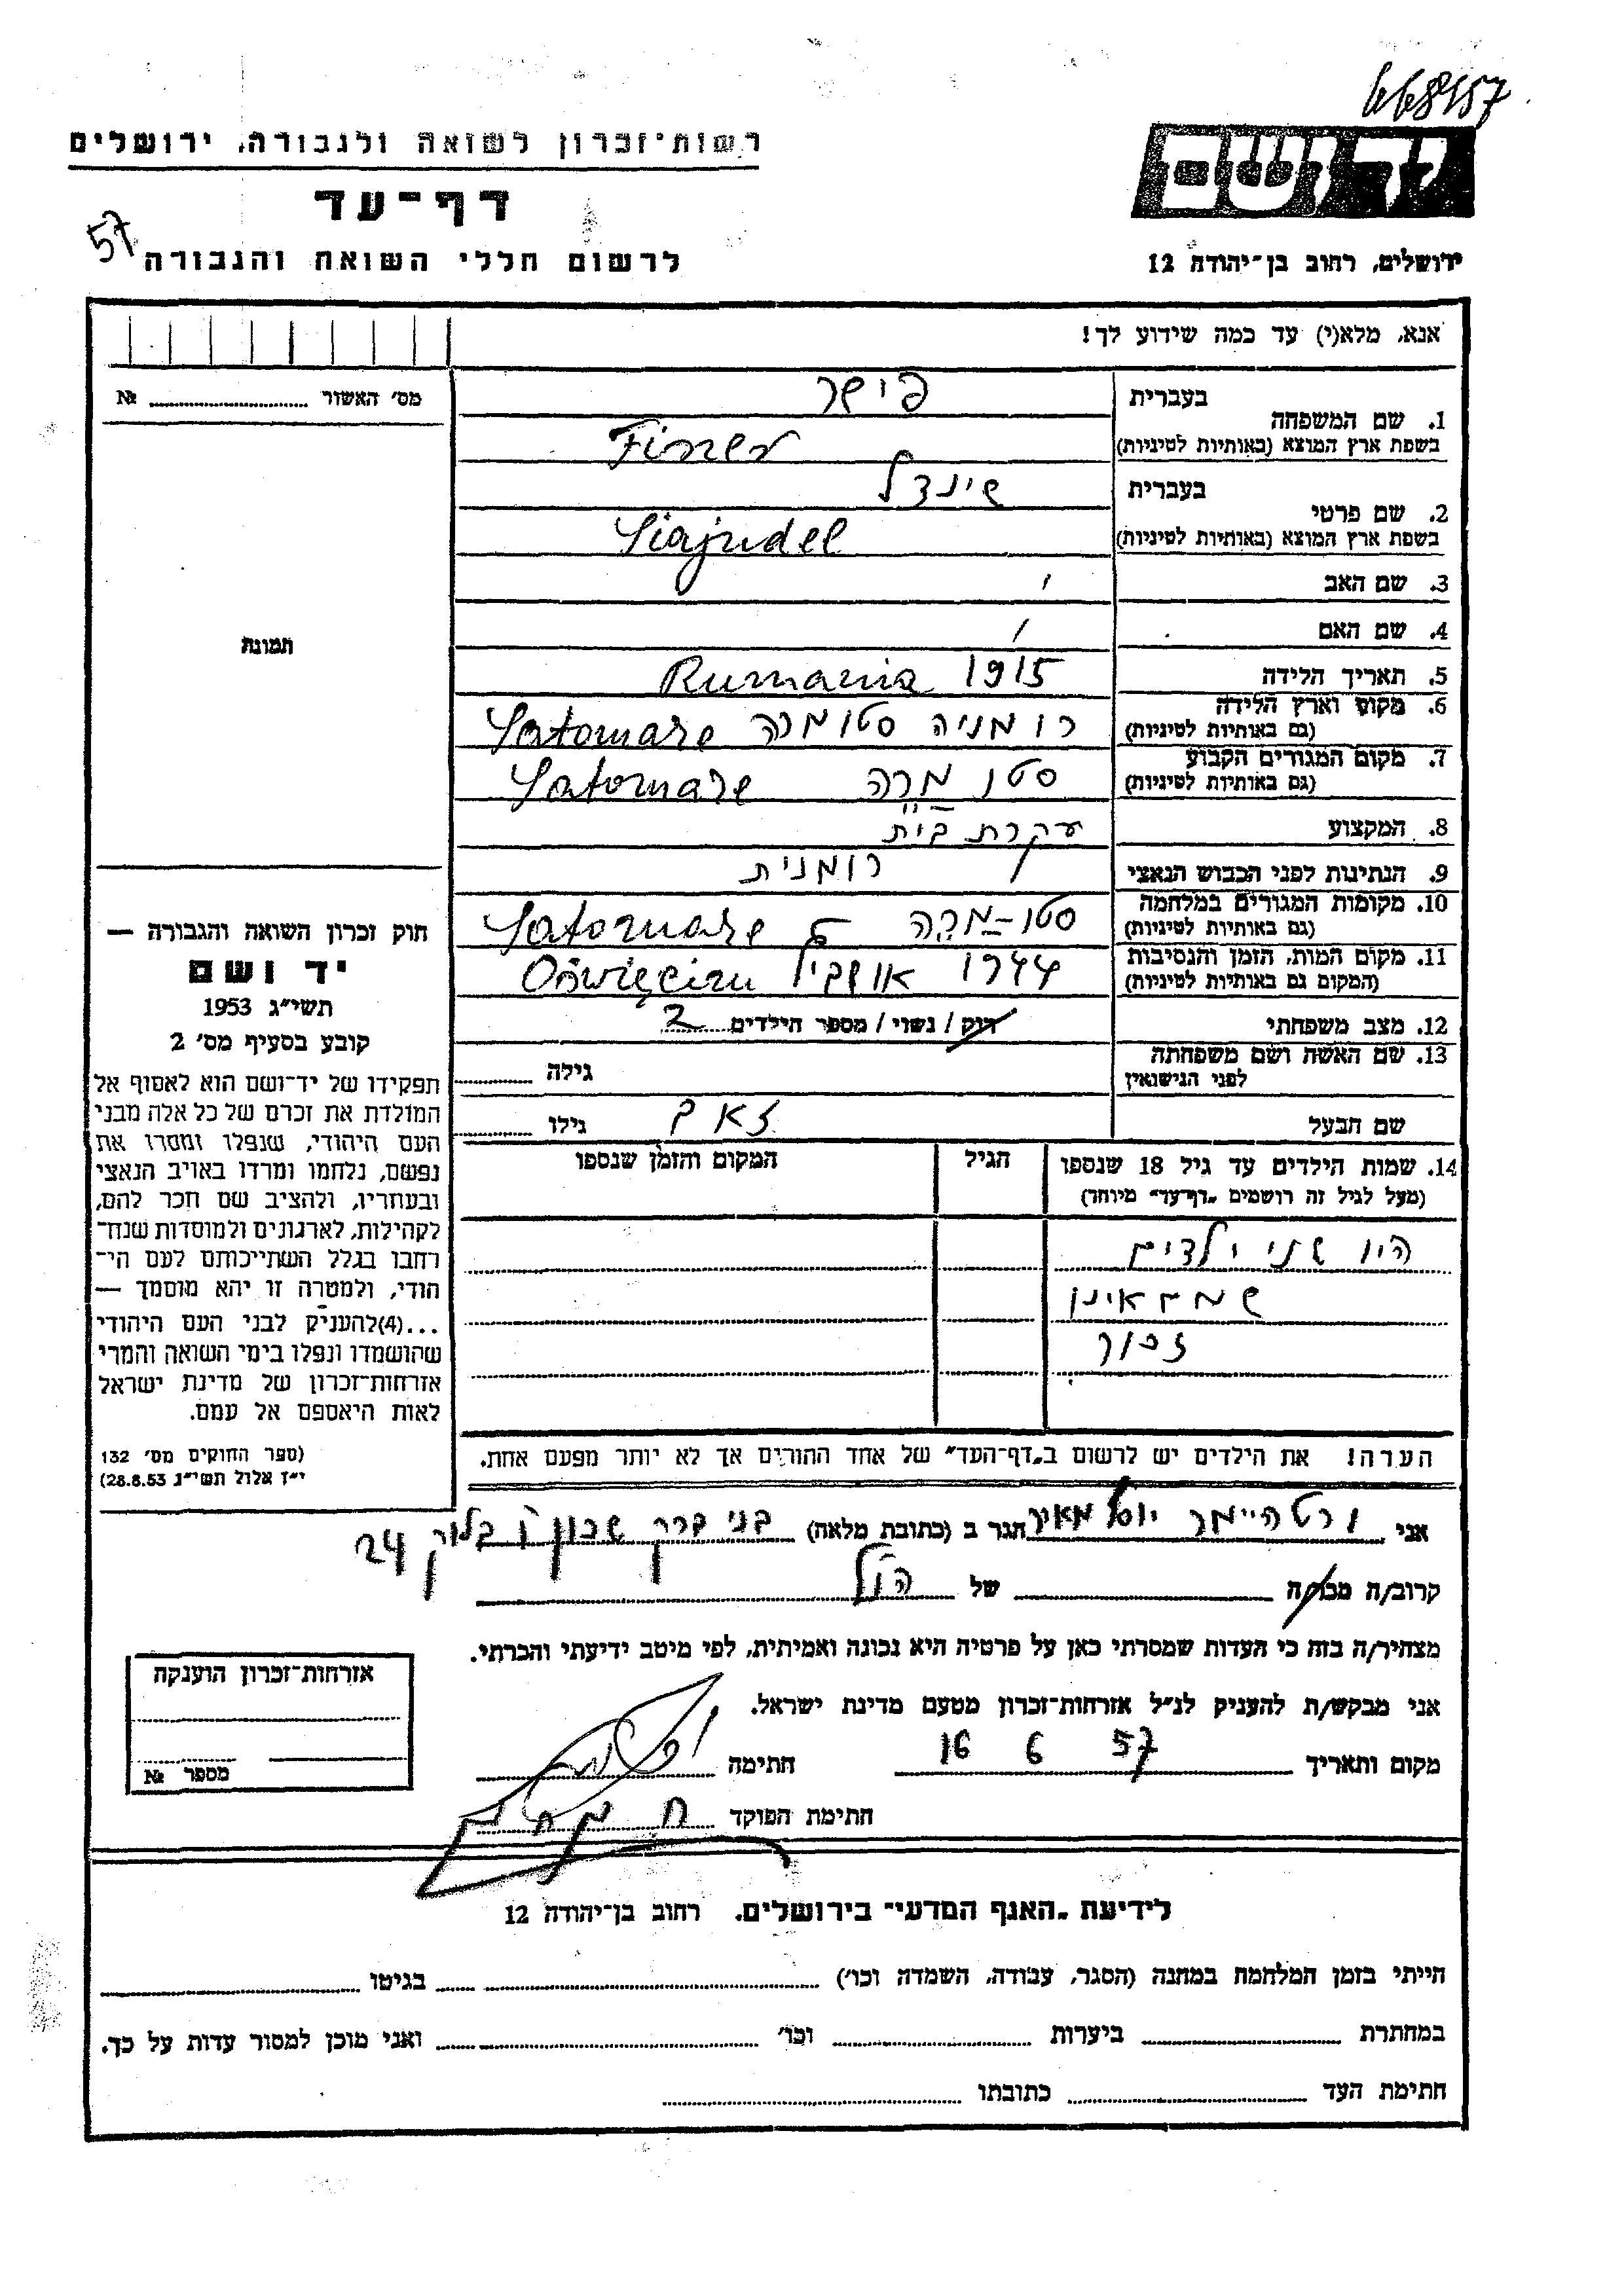 668457
רשות־זכרון לשואה ולגבורה, ירושלים
דף־עד
57
לרשום חללי השואה והגבורה
יד ושם
ירושלים, רחוב בן־יהודה 12
אנא, מלא(י) עד כמה שידוע לך!
מס׳ האשור № 
1. שם המשפחה
בעברית
פישר
בשפת ארץ המוצא (באותיות לטיניות)
Fiszer
2. שם פרטי
בעברית
שינדל
בשפת ארץ המוצא (באותיות לטיניות)
Siajndel
3. שם האב
4. שם האם
5. תאריך הלידה
1915 Rumania
6. מקום וארץ הלידה
(גם באותיות לטיניות)
רומניה סטומרה Satomare
7. מקום המגורים הקבוע
(גם באותיות לטיניות)
סטו מרה Satomare
8. המקצוע
עקרת בית
9. הנתינות לפני הכבוש הנאצי
רומנית
10. מקומות המגורים במלחמה
(גם באותיות לטיניות)
סטו-מרה Satomare
11. מקום המות, הזמן והנסיבות
(המקום גם באותיות לטיניות)
1944 Oświęcim
12. מצב משפחתי
רוק / נשוי / מספר הילדים 2
13. שם האשה ושם משפחתה
לפני הנישואין
גילה
שם הבעל
זאב
גילו
14. שמות הילדים עד גיל 18 שנספו
(מעל לגיל זה רושמים „דף־עד״ מיוחד)
הגיל
המקום והזמן שנספו
היו שני ילדים
שמם אינו
זכור
הערה! את הילדים יש לרשום ב„דף־העד״ של אחד ההורים אך לא יותר מפעם אחת.
תמונה
חוק זכרון השואה והגבורה —
יד ושם
תשי״ג 1953
קובע בסעיף מס׳ 2
תפקידו של יד־ושם הוא לאסוף אל
המולדת את זכרם של כל אלה מבני
העם היהודי, שנפלו ומסרו את
נפשם, נלחמו ומרדו באויב הנאצי
ובעוזריו, ולהציב שם וזכר להם,
לקהילות, לארגונים ולמוסדות שנח־
רבו בגלל השתייכותם לעם הי־
הודי, ולמטרה זו יהא מוסמך —
...(4)להעניק לבני העם היהודי
שהושמדו ונפלו בימי השואה והמרי
אזרחות־זכרון של מדינת ישראל
לאות היאספם אל עמם.
(ספר החוקים מס׳ 132
י״ז אלול תשי״ג 28.8.53)
אני ורטהיימר יוסף מאיר הגר ב (כתובת מלאה) בני ברק שכון ו בלוק 24
קרוב/ה מכר/ה של הנ״ל
מצהיר/ה בזה כי העדות שמסרתי כאן על פרטיה היא נכונה ואמיתית, לפי מיטב ידיעתי והכרתי.
אני מבקש/ת להעניק לנ״ל אזרחות־זכרון מטעם מדינת ישראל.
מקום ותאריך 16 6 57 חתימה
חתימת הפוקד
אזרחות־זכרון הוענקה
מספר №
לידיעת „האגף המדעי״ בירושלים, רחוב בן־יהודה 12
הייתי בזמן המלחמה במחנה (הסגר, עבודה, השמדה וכו׳) בגיטו
במחתרת ביערות וכו׳ ואני מוכן למסור עדות על כך.
חתימת העד כתובתו